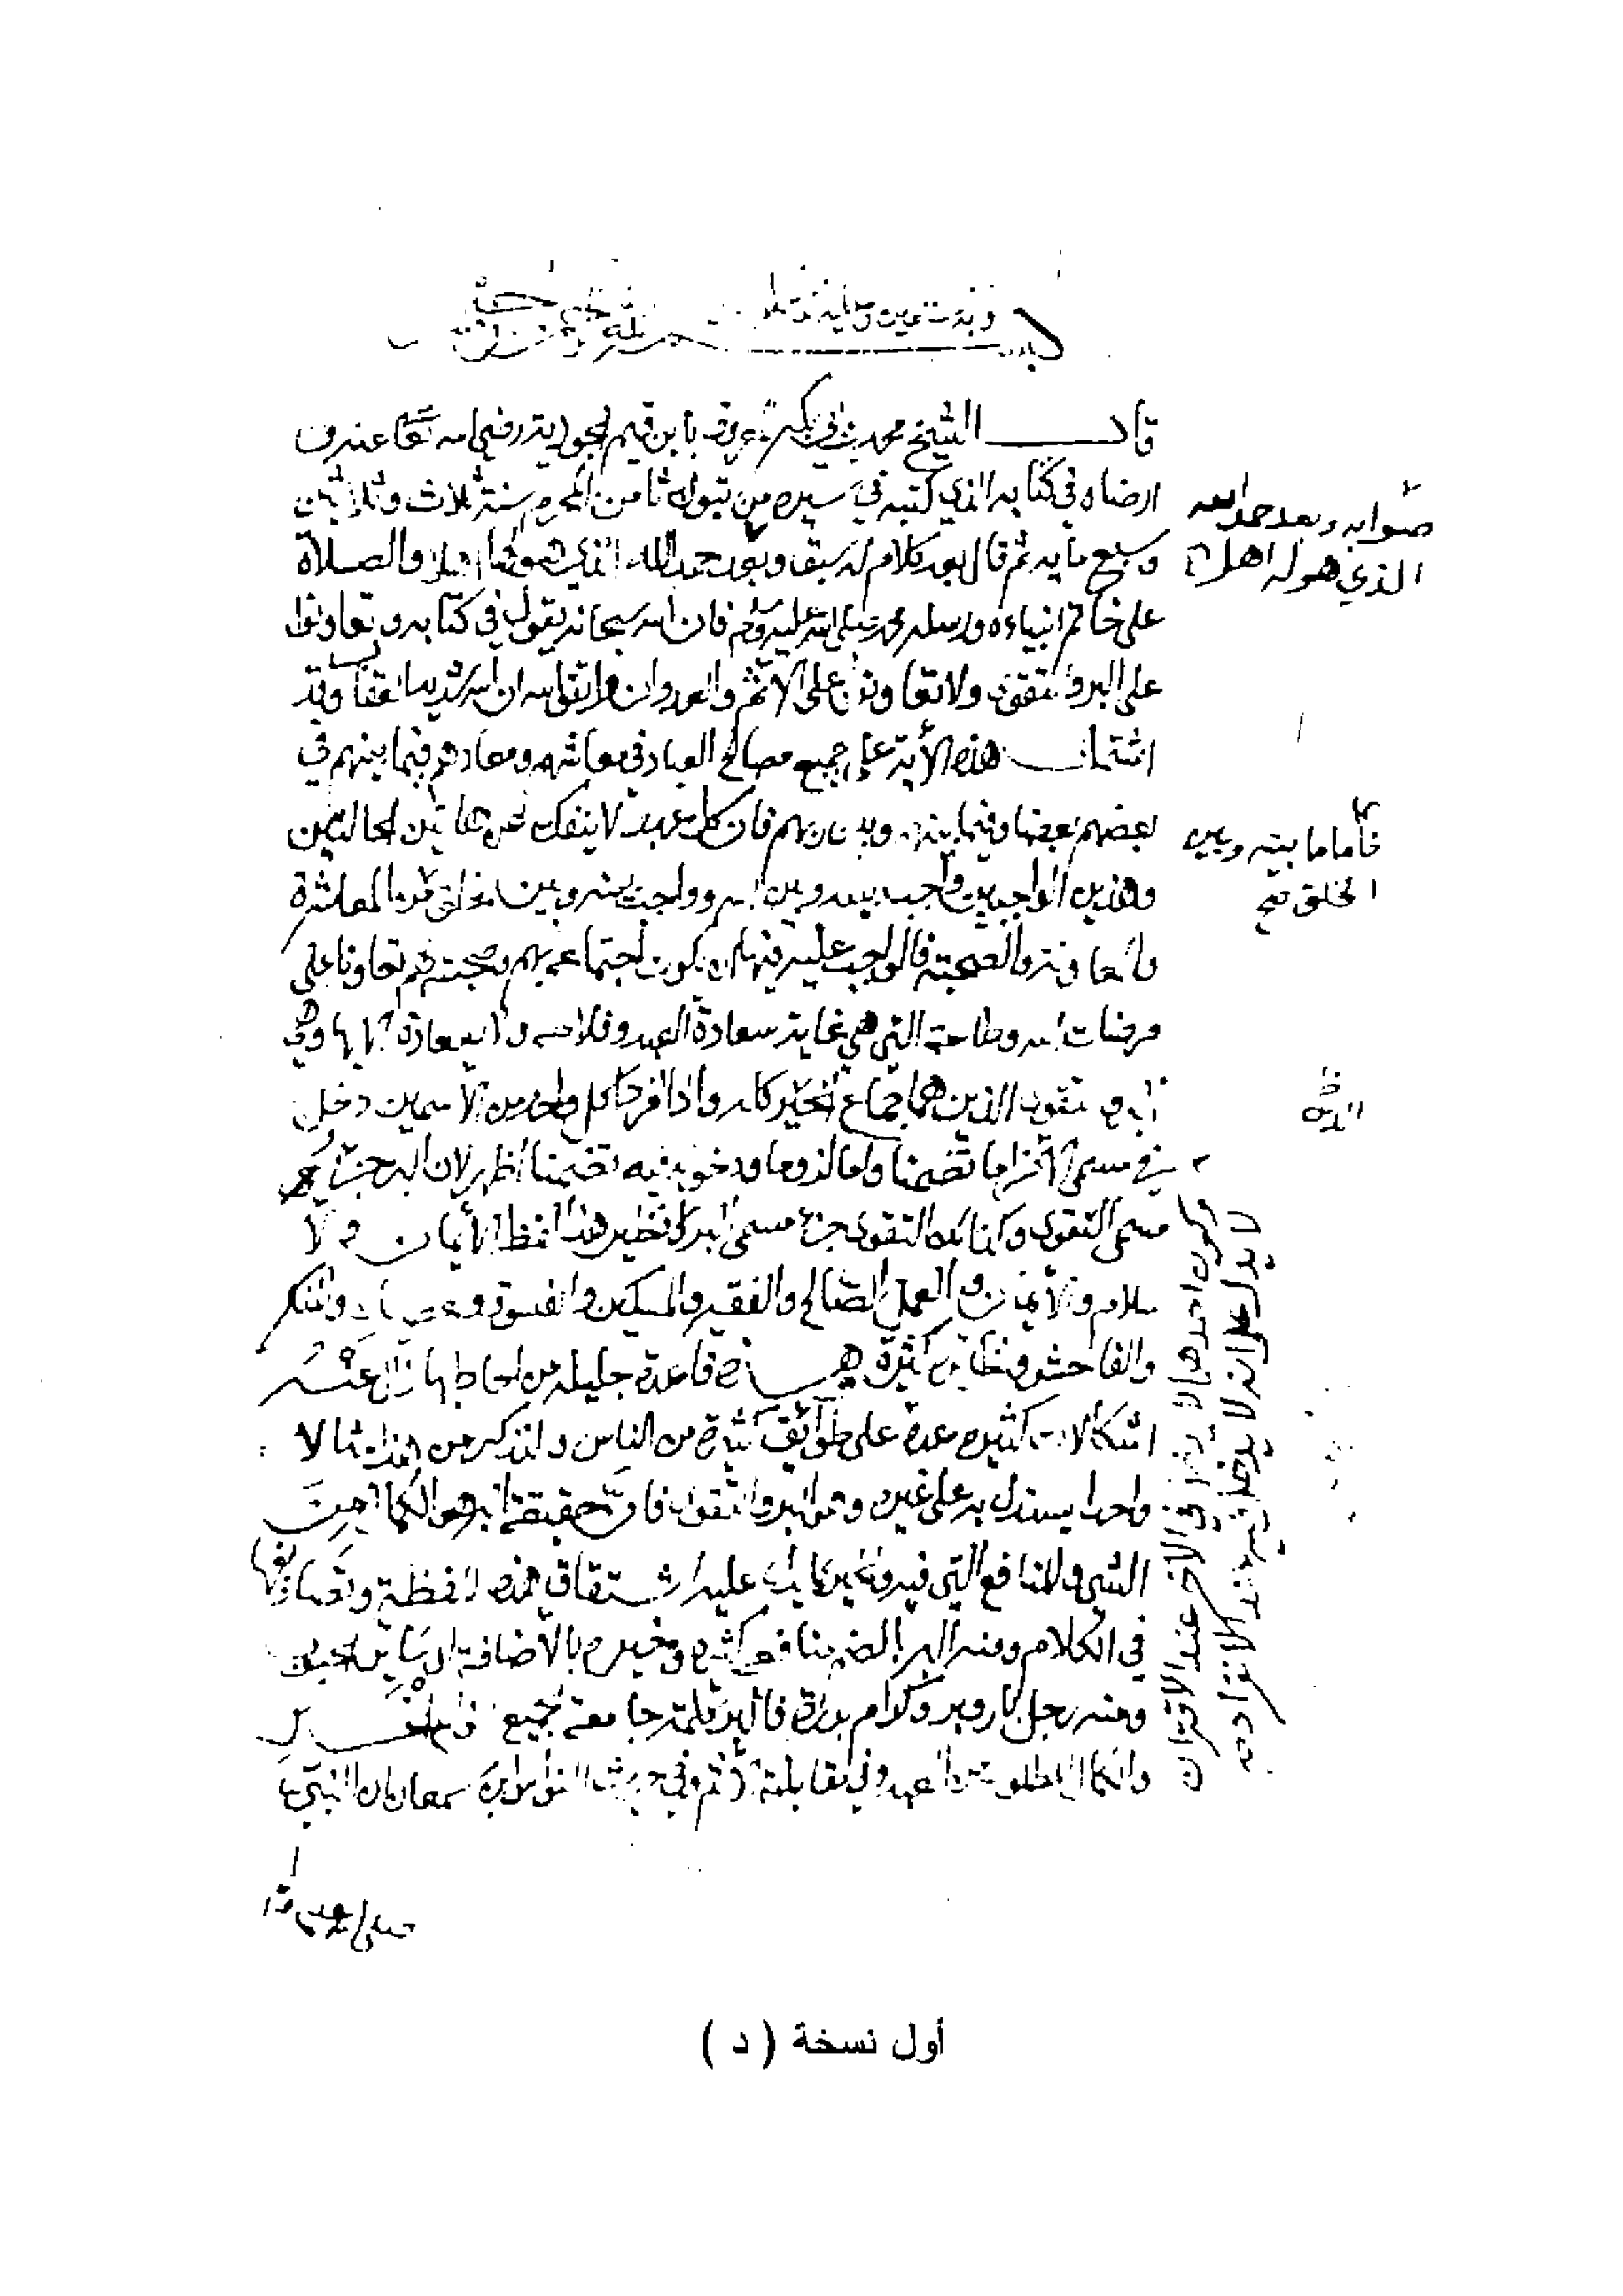 وبه نستعين وعليه
بسم الله الرحمن الرحيم
قال الشيخ محمد بن ابي بكر عرف بابن قيم الجوزية رضي الله تعالى عنه و
ارضاه في كتابه الذي كتبه في سيره من تبوك ثامن المحرم سنة ثلاث وثلاثين
وسبع مايه ثم قال بعد كلام له سبق وبعد حمد الله الذي هو اهلا والصلاة
على خاتم انبياءه ورسله محمد صلى الله عليه وسلم فان الله سبحانه يقول في كتابه وتعاونوا
على البر والتقوى ولا تعاونوا على الاثم والعدوان واتقوا الله ان الله شديد العقاب وقد
اشتملت هذه الأية على جميع مصالح العباد في معاشهم ومعادهم فيما بينهم في
بعضهم بعضا وفيما بينهم وبين ربهم فان كل عبد لا ينفك عن هاتين الحالتين
وهذين الواجبين واجب بينه وبين الله وواجب بينه وبين الخلق من المعاشرة
والمعاونة والصحبة فالواجب عليه فيهم ان يكون اجتماعه بهم وصحبته لهم تعاونا على
مرضات الله وطاعته التي هي غاية سعادة العبد وفلاحه ولا سعادة له الا بها وهي
البر والتقوى الذين هما جماع الخير كله واذا افرد كل واحد من الاسمين دخل
في مسمى الاخر اما تضمنا واما لزوما ودخوله فيه تضمنا اظهر لان البر جزء
مسمى التقوى وكذلك التقوى جزء مسمى البر ونظير هذا لفظ الأيمان والا
سلام والأيمان والعمل الصالح والفقير والمسكين والفسوق والعصيان والمنكر
والفاحشه ونظايره كثيرة وهذه قاعدة جليلة من احاط بها زال عنه
اشكالات كثيره عدة على طوائف كثيرة من الناس ولنذكر من هذا مثالا
واحدا يستدل به على غيره وهو البر والتقوى فان حقيقة البر هو الكمال من
الشي والمنافع التي فيه والخير كما يدل عليه اشتقاق هذه الفظة وتصاريفها
في الكلام ومنه البر بالضم لمنافعه كثيره وخيره بالأضافة الى ساير الحبوب
ومنه رجل بار وبر وكرام بررة فالبر كلمة جامعة لجميع
والكمال المطلوب من العبد وفي مقابلته الاثم وفي حديث النواس ابن سمعان ان النبي
صوابه وبعد حمد الله
الذي هو له اهل
فاما ما بينه وبين
الخلق صح
وكون احدهما لا يدخل في الاخر عند الاقتران
لا يدل على انه لا يدخل فيه عند الانفراد
أول نسخة ( د )